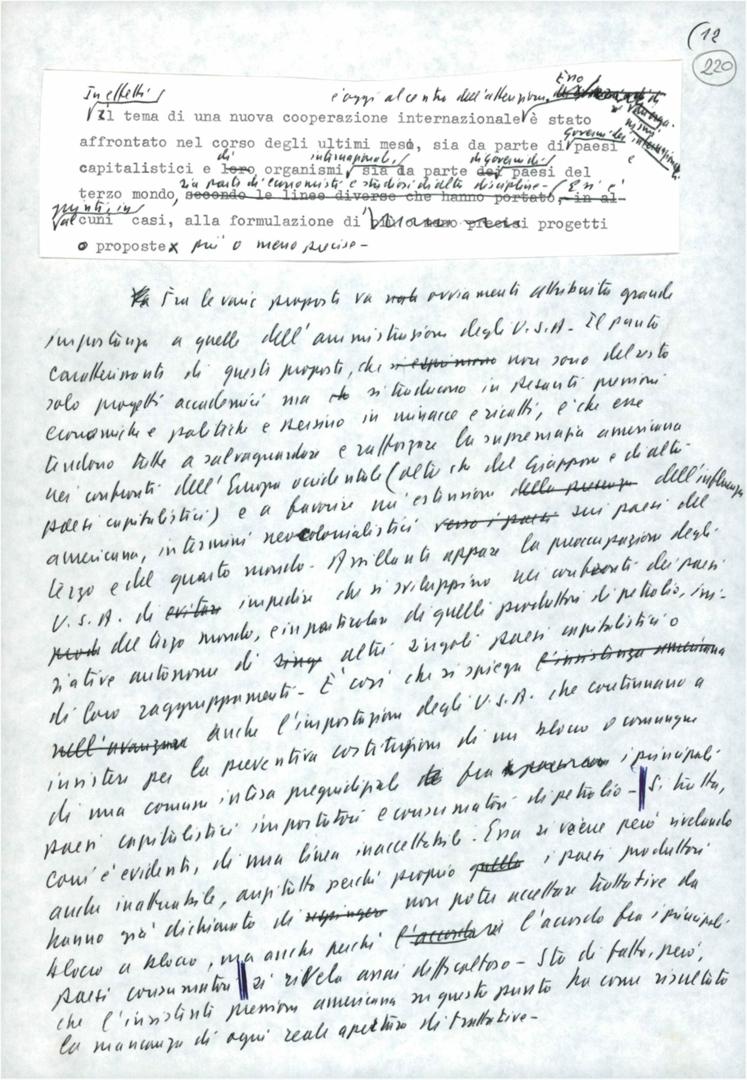 (12
220
In effetti,
è oggi al centro dell'attenzione. Esso
il tema di una nuova cooperazione internazionale è stato
affrontato nel corso degli ultimi mesi, sia da parte di governi dei paesi
di internazionali, di governi di e
capitalistici e loro organismi, sia da parte dei paesi del
sia parte di economisti e studiosi di altre discipline - (E si è
terzo mondo, secondo le linee diverse che hanno portato, in al-
giunti, in
alcuni casi, alla formulazione di progetti
o proposte più o meno precise -
Fra le varie proposte va ovviamente attribuita grande
importanza a quelle dell'amministrazione degli U.S.A. - Il punto
caratterizzante di queste proposte, che si esprimono non sono del resto
solo progetti accademici ma si traducono in pesanti pressioni
economiche e politiche e persino in minacce e ricatti, è che esse
tendono tutte a salvaguardare e rafforzare la supremazia americana
nei confronti dell'Europa occidentale (oltre che del Giappone e di altri
paesi capitalistici) e a favorire un'estensione della presenza dell'influenza
americana, in termini neocolonialistici verso i paesi sui paesi del
terzo e del quarto mondo - Assillante appare la preoccupazione degli
U.S.A. di evitare impedire che si sviluppino nei confronti dei paesi
del terzo mondo, e in particolare di quelli produttori di petrolio, ini-
ziative autonome di singo altri singoli paesi capitalistici o
di loro raggruppamenti - È così che si spiega l'insistenza americana
nell'avanzare anche l'impostazione degli U.S.A. che continuano a
insistere per la preventiva costituzione di un blocco o comunque
di una comune intesa pregiudiziale fra i principali
paesi capitalistici importatori e consumatori di petrolio - Si tratta,
com'è evidente, di una linea inaccettabile - Essa si viene però rivelando
anche inattuabile, anzitutto perché proprio quelli i paesi produttori
hanno già dichiarato di respingere non poter accettare trattative da
blocco a blocco, ma anche perché l'accordo l'accordo fra i principali
paesi consumatori si rivela assai difficoltoso - Sta di fatto, però,
che l'insistente pressione americana su questo punto ha come risultato
la mancanza di ogni reale apertura di trattative -